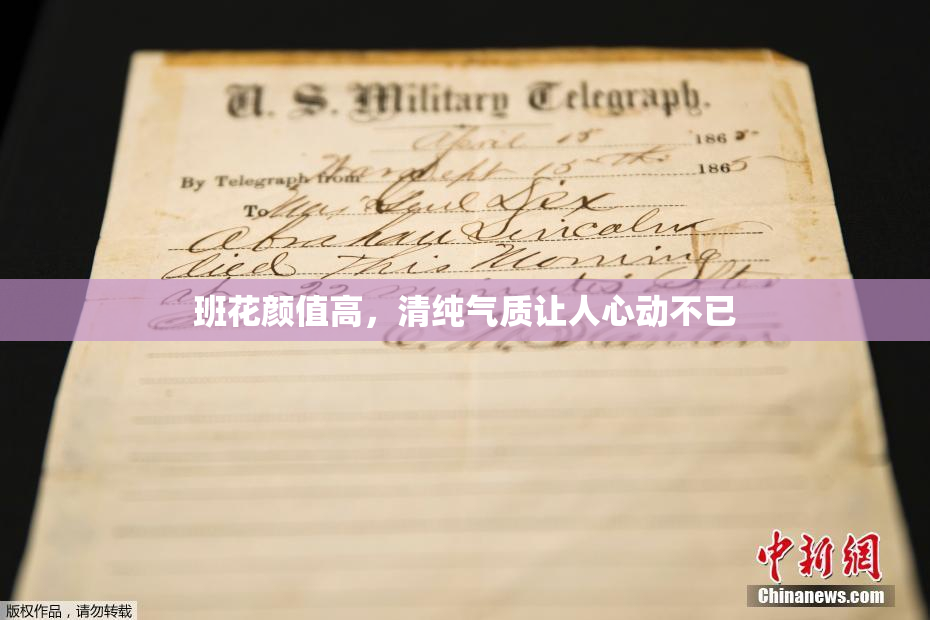 U. S. Military Telegraph.
April 15 1865.
By Telegraph from War Dept 15th 1865
To Maj Genl Dix
Abraham Lincoln
died This Morning
at 22 minutes after
班花颜值高，清纯气质让人心动不已
E. M. Stanton
中新网
Chinanews.com
版权作品，请勿转载